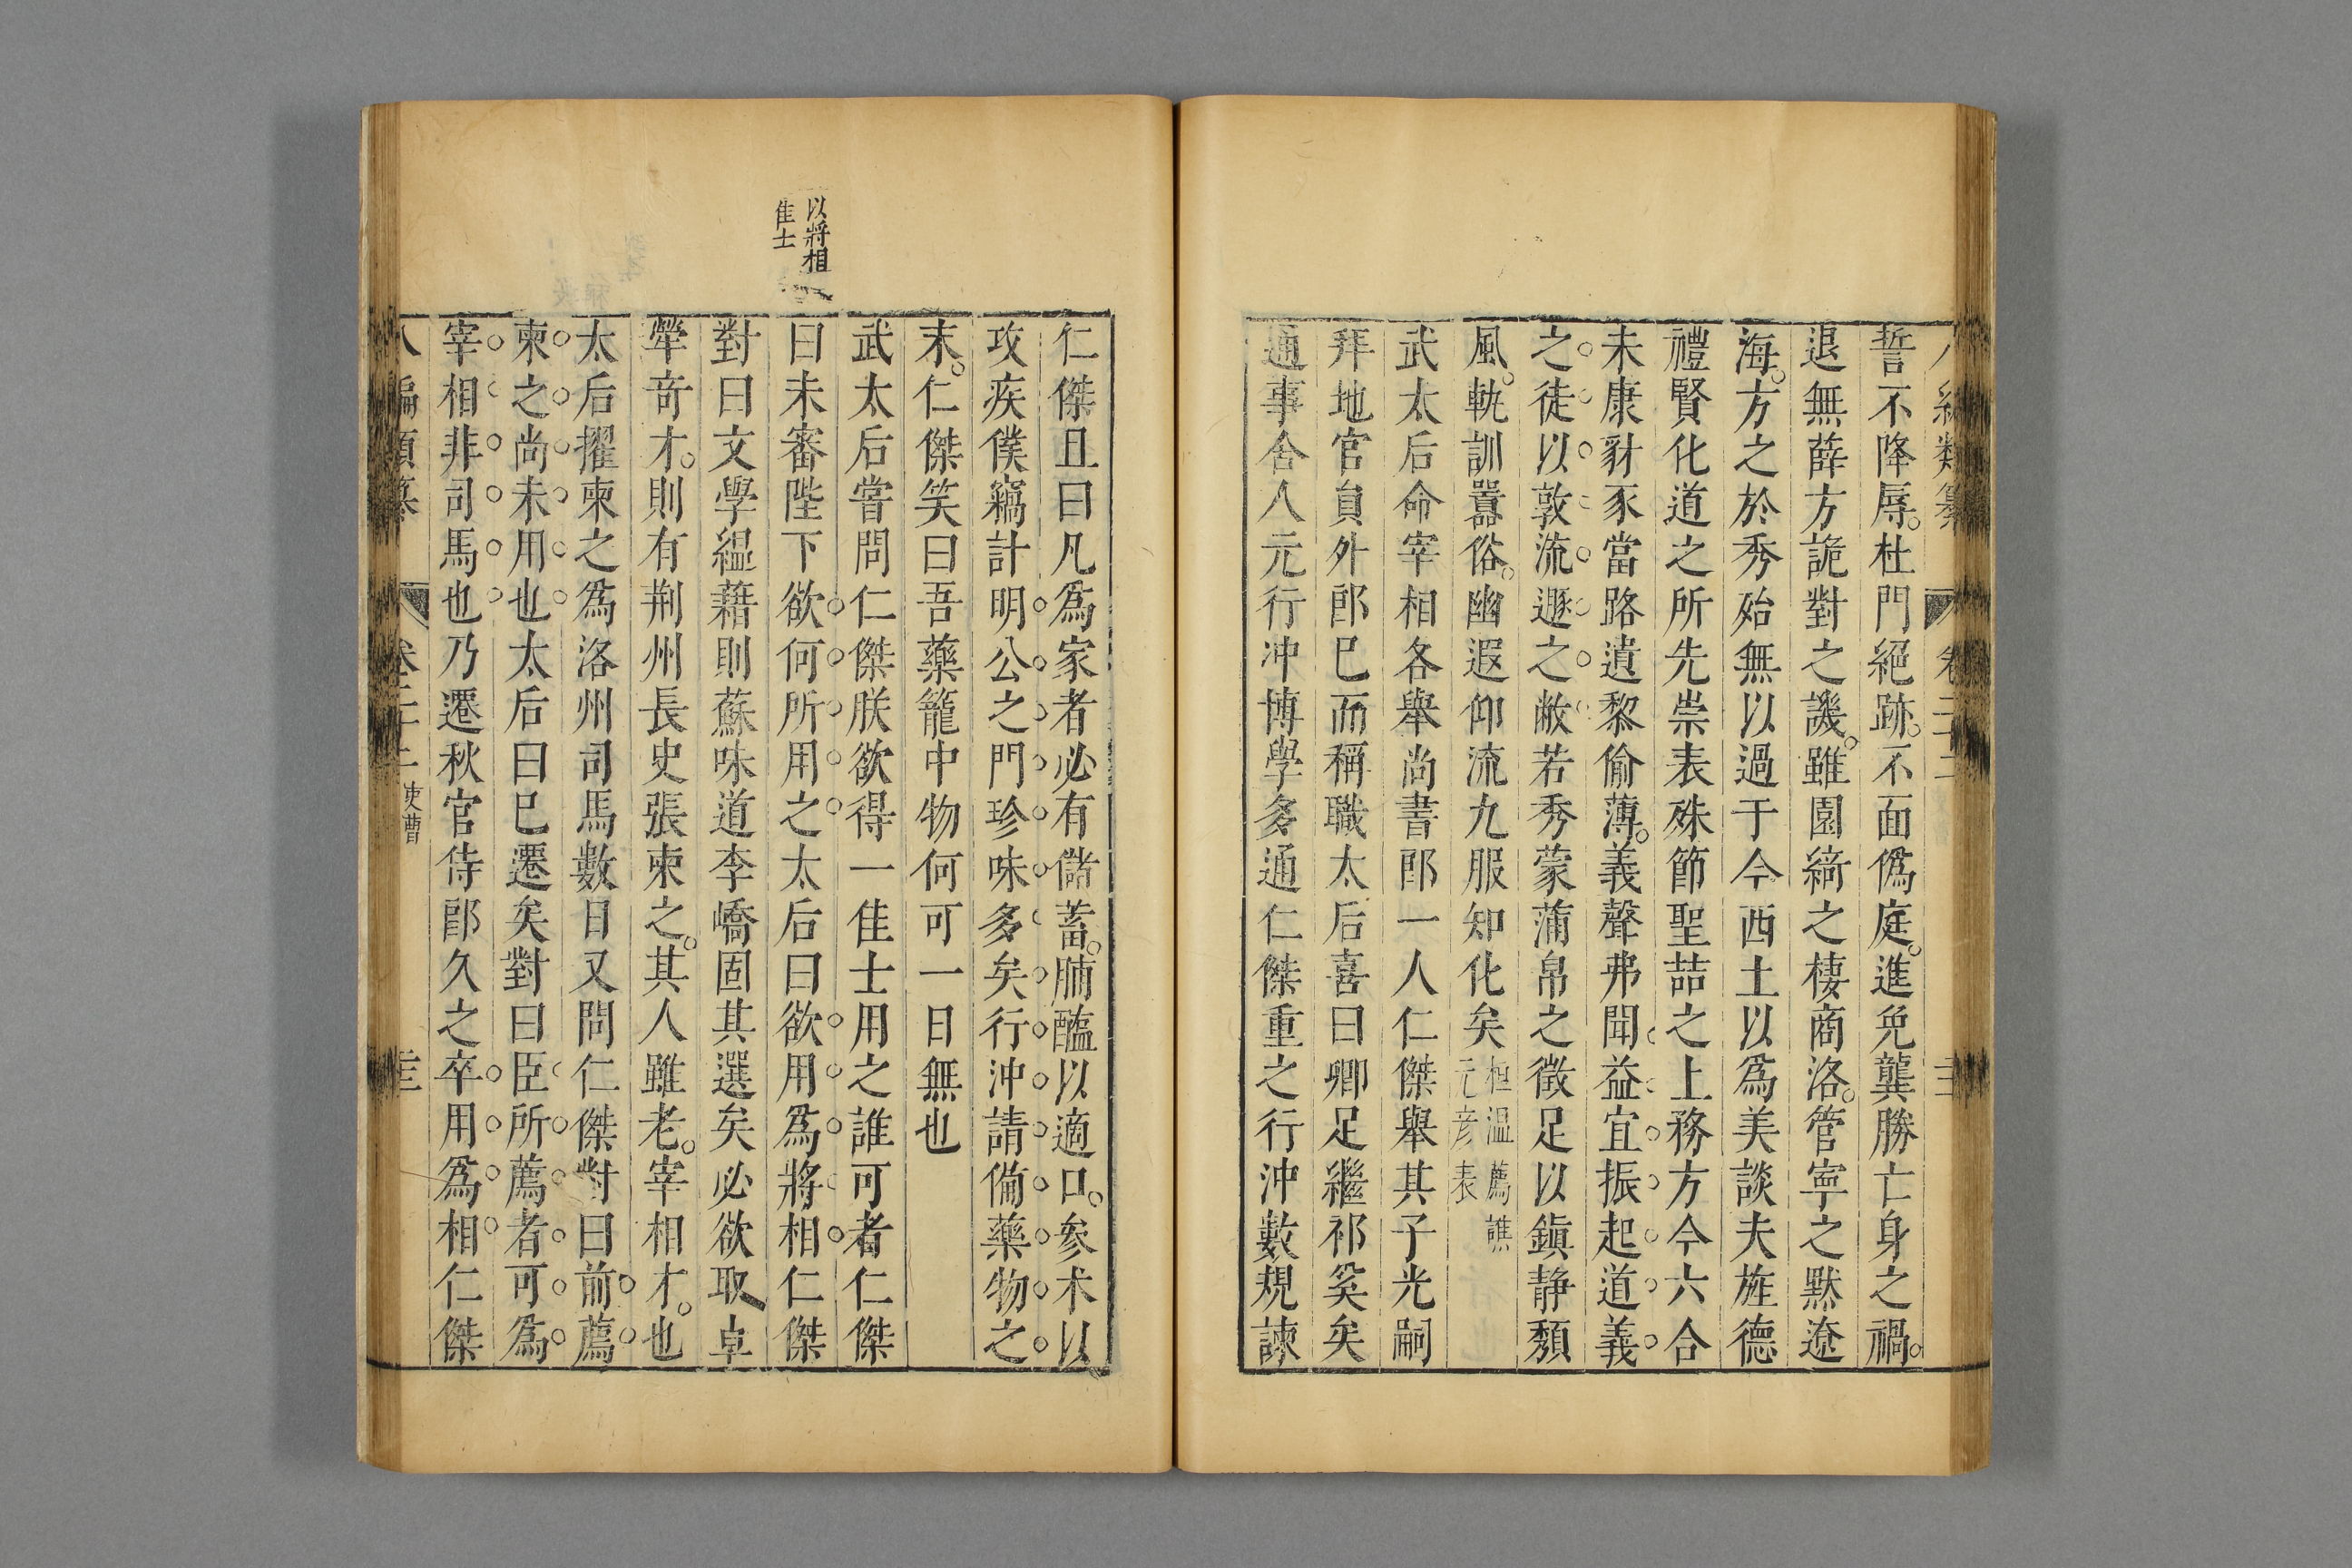 誓不降辱。杜門絕跡。不面僞庭。進免龔勝亡身之禍。
退無薛方詭對之譏。雖園綺之棲商洛。管寧之默遼
海。方之於秀殆無以過于今西土以爲美談夫旌德
禮賢化道之所先崇表殊節聖喆之上務方今六合
未康豺豕當路遺黎偷薄。義聲弗聞益宜振起道義
之徒以敦流遯之敝若秀蒙蒲帛之徵足以鎭静頽
風。軌訓囂俗。幽遐仰流九服知化矣桓温薦譙
元彦表
武太后命宰相各舉尚書郎一人仁傑舉其子光嗣
拜地官員外郎已而稱職太后喜曰卿足繼祁奚矣
通事舍人元行沖博學多通仁傑重之行沖數規諫
以將相
隹士
仁傑且曰凡爲家者必有儲蓄。脯醢以適口。参术以
攻疾僕竊計明公之門珍味多矣行沖請備藥物之
末。仁傑笑曰吾藥籠中物何可一日無也
武太后嘗問仁傑朕欲得一佳士用之誰可者仁傑
曰未審陛下欲何所用之太后曰欲用爲將相仁傑
對曰文學緼藉則蘇味道李嶠固其選矣必欲取卓
犖奇才。則有荆州長史張柬之。其人雖老。宰相才。也
太后擢柬之爲洛州司馬數日又問仁傑對曰前薦
柬之尚未用也太后曰已遷矣對曰臣所薦者可爲
宰相非司馬也乃遷秋官侍郎久之卒用爲相仁傑